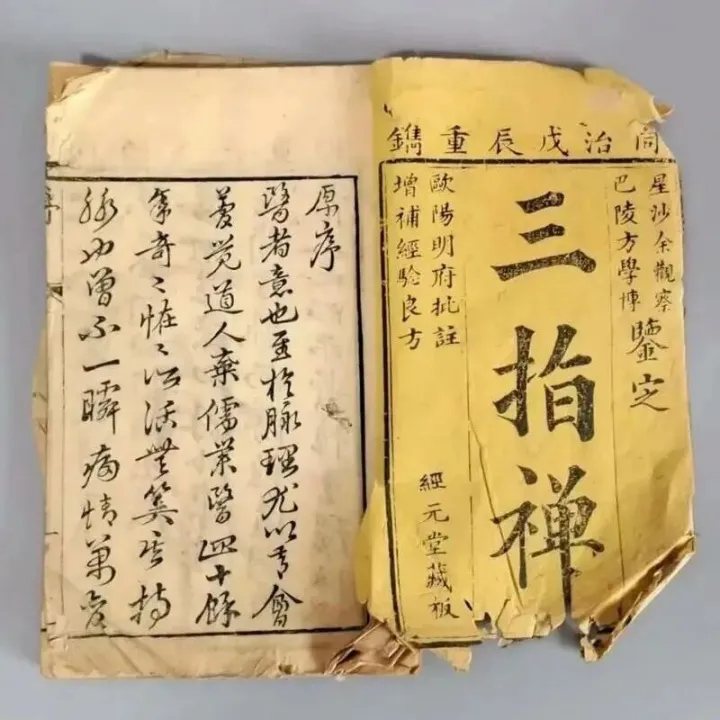 同治戊辰重鐫
星沙余觀察
巴陵方學博
鑒定
三指禪
歐陽明府批註
增補經驗良方
經元堂藏板
原序
醫者意也至於脉理尤以意會
夢覺道人棄儒業醫四十餘
年奇〻恠〻治活無筭其持
脉也曾不一瞬病情萬變